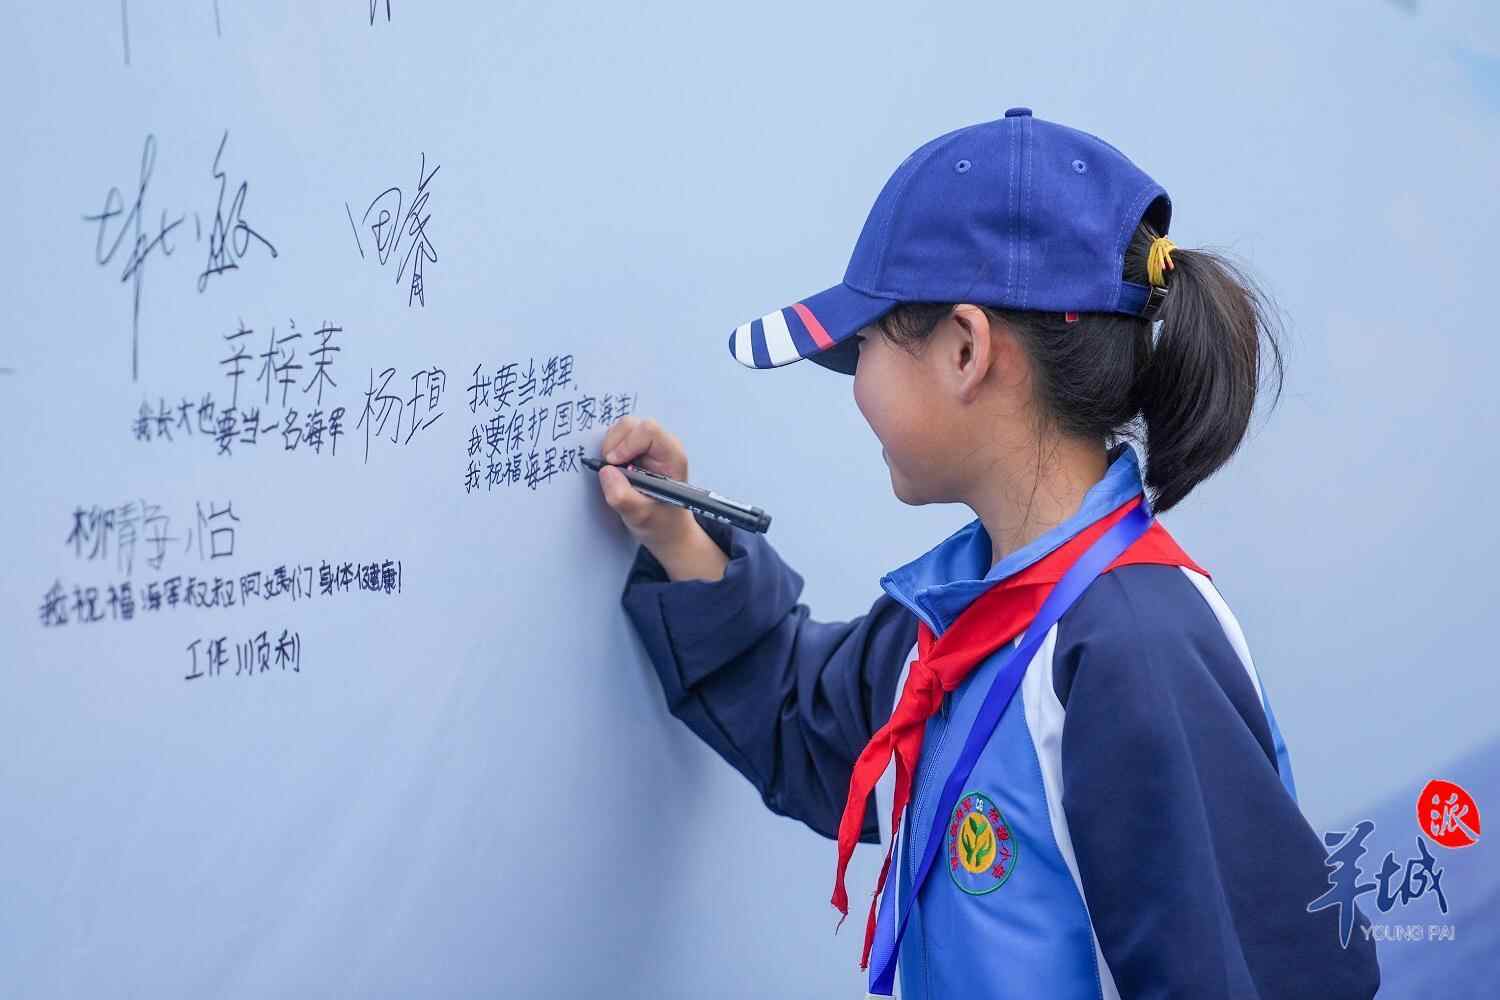 田睿
辛梓茉
我长大也要当一名海军
杨瑄
我要当海军.
我要保护国家海洋!
我祝福海军叔
柳静怡
我祝福海军叔叔阿姨们身体健康!
工作顺利
派
羊城
YOUNG PAI